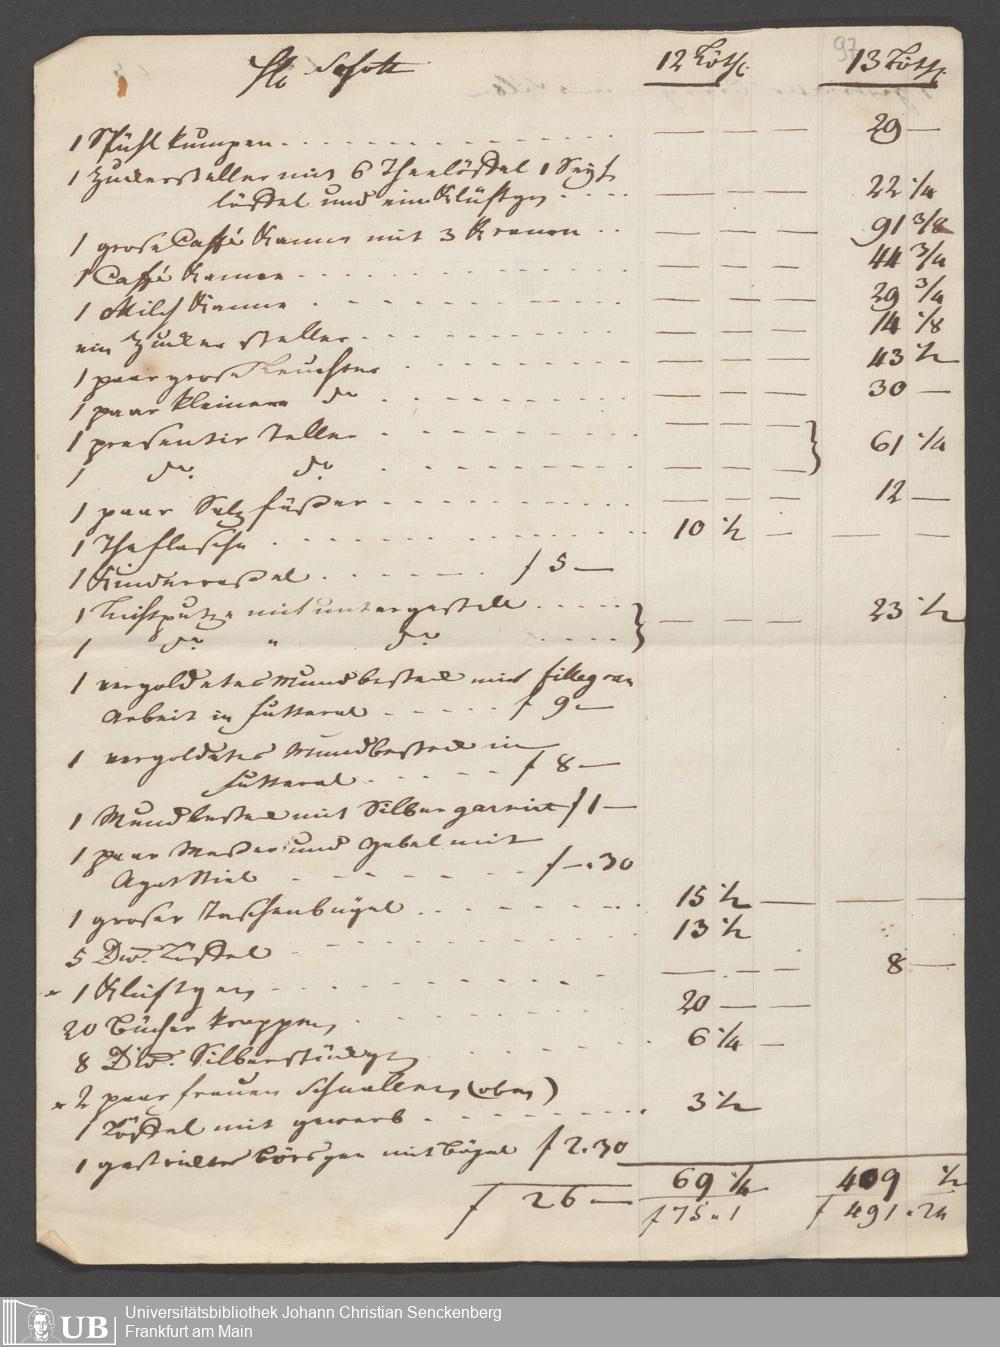 97
Flo Schott 12 Löth. 13 Löth.
1 Spühl kumpen 29 —
1 Zuckerteller mit 6 Theelöffel 1 Seyf
löffel und ein Klüftgen 22 1/4
1 grose Caffé Kanne mit 3 Kranen 91 3/8
1 Caffé Kanne 44 3/4
1 Milch Kanne 29 3/4
ein Zucker teller 14 1/8
1 paar grose Leuchter 43 1/2
1 paar kleinere do 30 —
1 presentir Teller
1 do. do. } 61 1/4
1 paar Salzfäßer 12 —
1 Theflasche 10 1/2
1 Kinderraßel f 5 —
1 Lichtputze mit untergestell
1 do " do } 23 1/2
1 vergoldetes Mundbesteck mit fillegran
Arbeit in Futteral f 9 —
1 vergoldetes Mundbesteck in
Futteral f 8 —
1 Mundbesteck mit Silber garnirt f 1 —
1 paar Meßer und Gabel mit
Agat Stiel f —.30
1 groser Taschenbügel 15 1/2
5 Div. Löffel 13 1/2
1 Klüftgen 8 —
20 Bücher krappen 20 —
8 Div. Silberstückgen 6 1/4
2 paar frauen Schnallen (oben)
1 Löffel mit gewerb 3 1/2
1 gestrickter Börsgen mit Bögel f 2.30
f 26 — 69 1/4 409 1/2
f 75.1 f 491.24
UB
Universitätsbibliothek Johann Christian Senckenberg
Frankfurt am Main